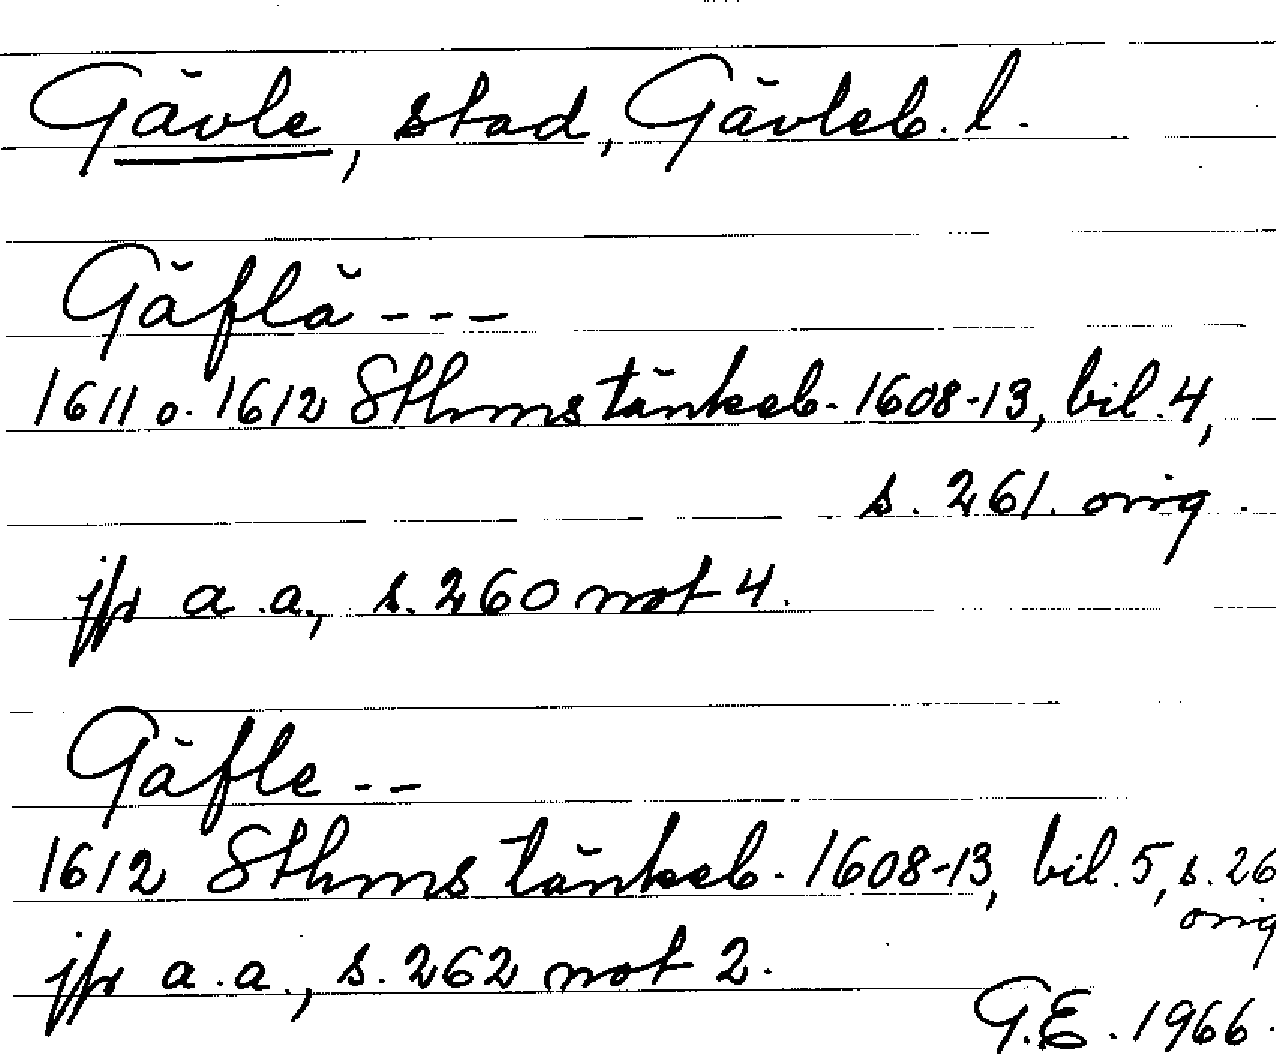 Gävle, stad, Gävleb. l.
Gäflä ---
1611 o. 1612 Sthms tänkeb. 1608-13, bil. 4,
s. 261. orig.
jfr a.a., s. 260 not 4.
Gäfle --
1612 Sthms tänkeb. 1608-13, bil. 5, s. 26
orig
jfr a.a., s. 262 not 2.
G.E. 1966.